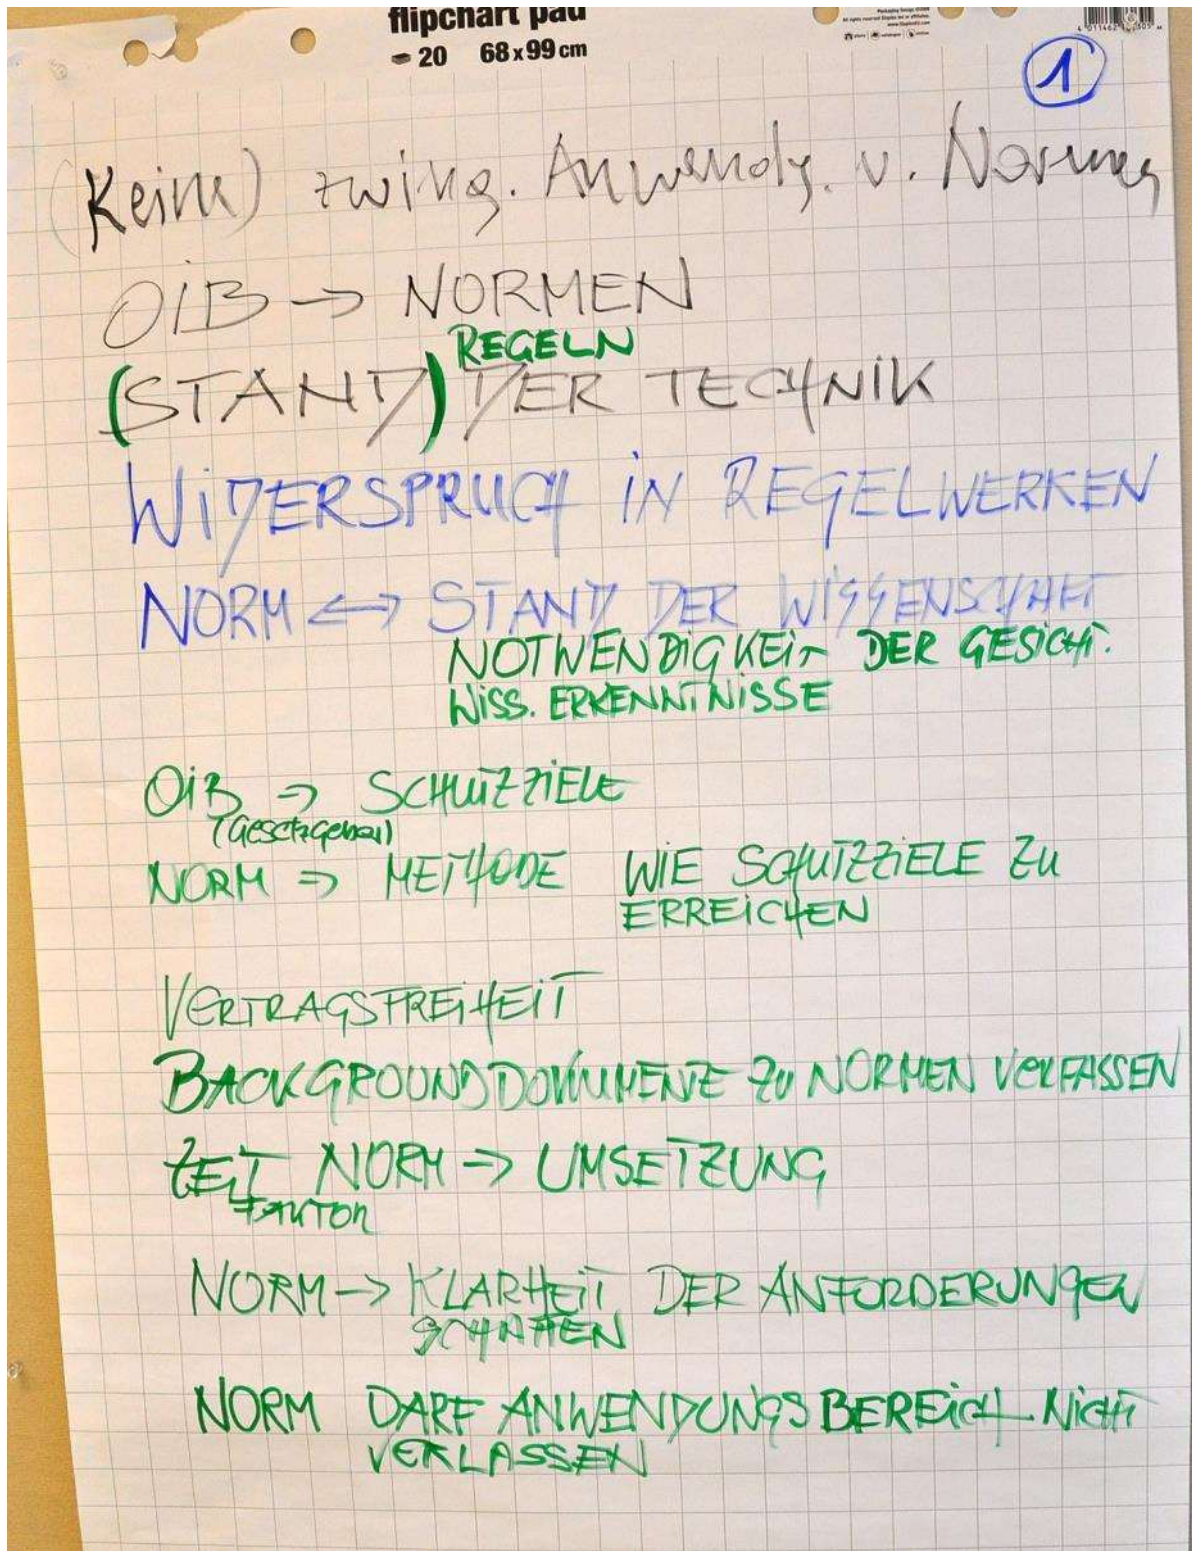 flipchart pad
20 68 x 99 cm
1
(Keine) zwing. Anwendg. v. Normen
OIB → NORMEN
REGELN
(STAND) DER TECHNIK
WIDERSPRUCH IN REGELWERKEN
NORM ↔ STAND DER WISSENSCHAFT
NOTWENDIGKEIT DER GESICHT.
WISS. ERKENNTNISSE
OIB → SCHUTZZIELE
(Gesetzgeber)
NORM → METHODE WIE SCHUTZZIELE ZU
ERREICHEN
VERTRAGSFREIHEIT
BACKGROUNDDOKUMENTE ZU NORMEN VERFASSEN
ZEIT NORM → UMSETZUNG
FAKTOR
NORM → KLARHEIT DER ANFORDERUNGEN
SCHAFFEN
NORM DARF ANWENDUNGSBEREICH NICHT
VERLASSEN